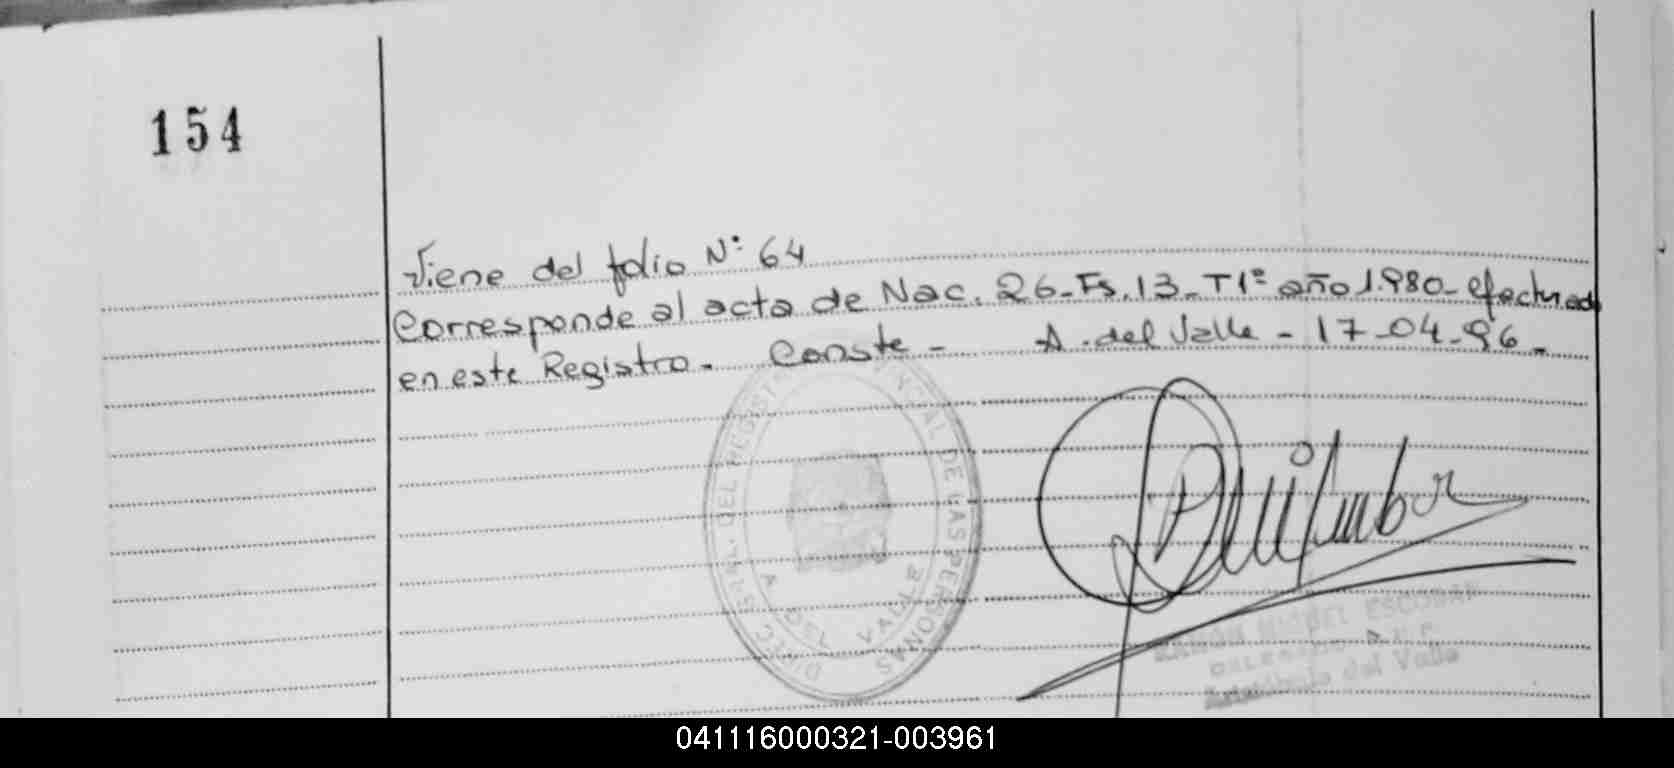 154
Viene del folio N° 64
Corresponde al acta de Nac. 26_Fs.13_T1° año 1.980_efectuado
en este Registro_ Conste_ A. del Valle_17_04_96_
DIREC. GRAL. DEL REGISTRO PROVINCIAL DE LAS PERSONAS
A. DEL VALLE
RAMON MIGUEL ESCOBAR
DELEGADO R.P.
Aristóbulo del Valle
041116000321-003961